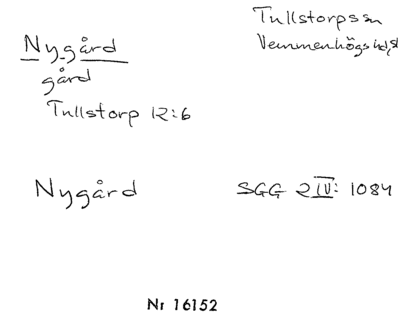 Tullstorps sn
Nygård
Vemmenhögs hd, sk
gård
Tullstorp 12:6
Nygård
SGG 2 IV: 1084
Nr 16152